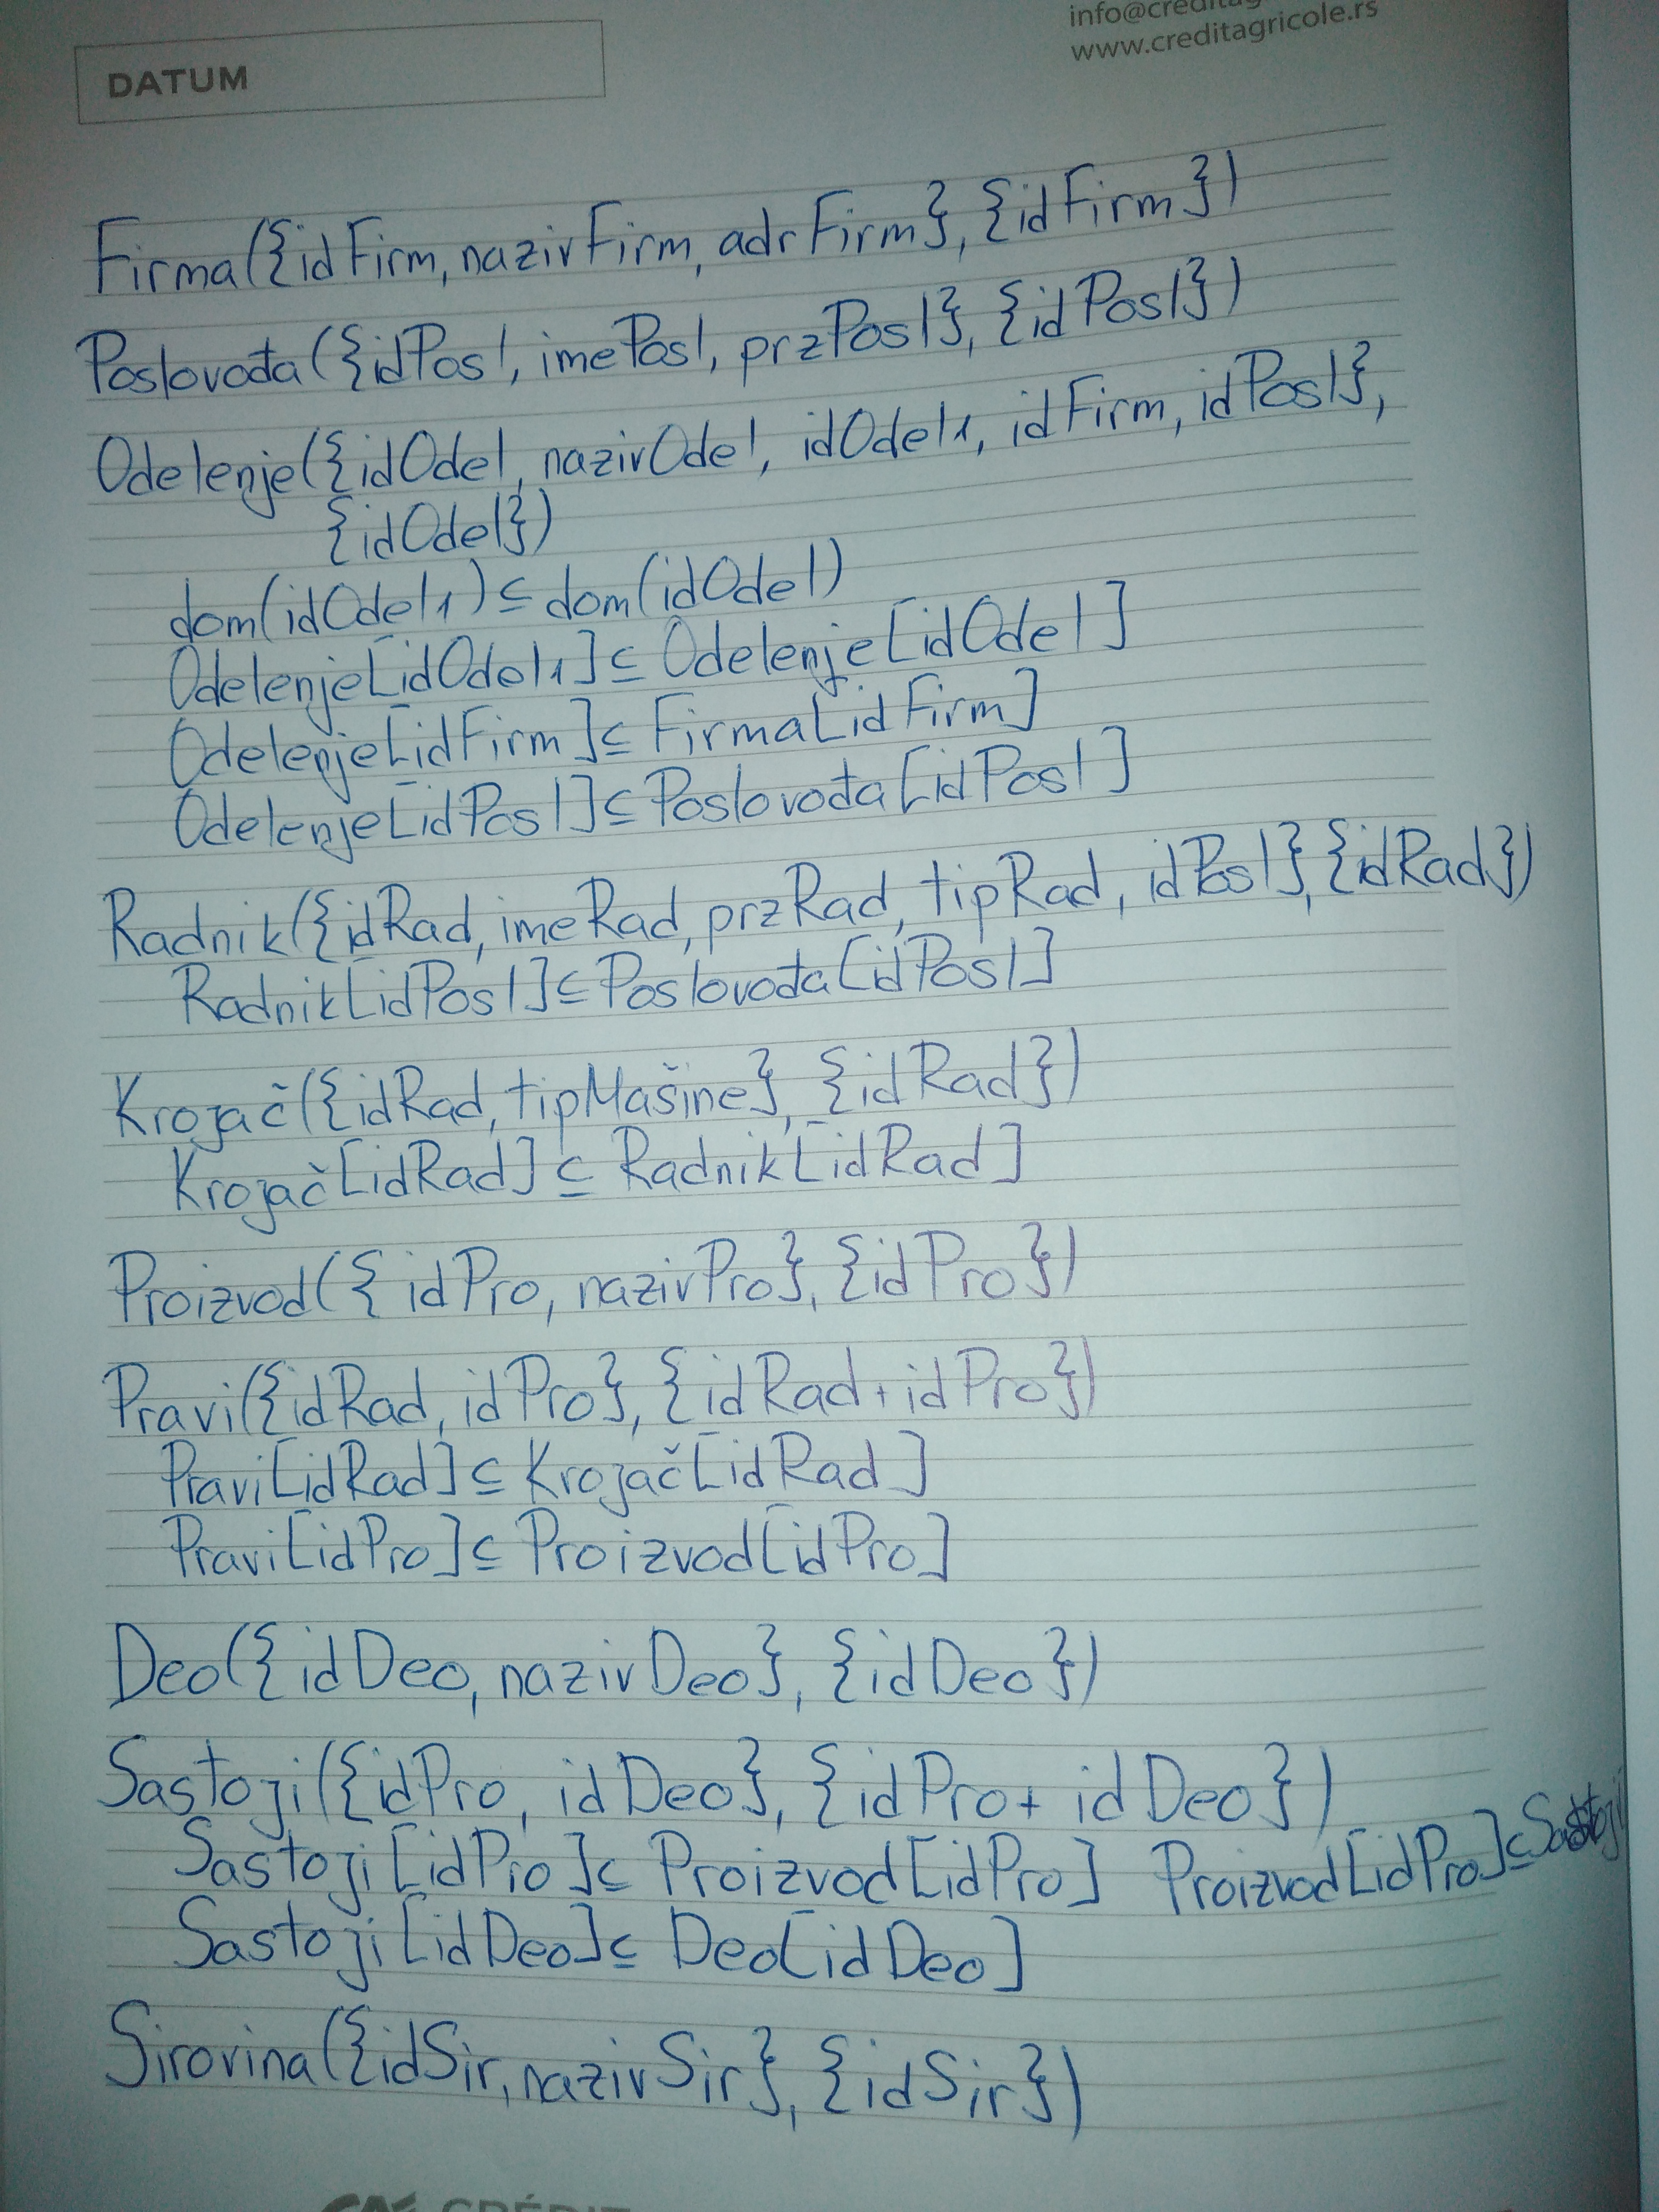 info@credita
www.creditagricole.rs
DATUM
Firma({idFirm, nazivFirm, adrFirm}, {idFirm})
Poslovođa({idPosl, imePosl, przPosl}, {idPosl})
Odelenje({idOdel, nazivOdel, idOdel1, idFirm, idPosl},
{idOdel})
dom(idOdel1)⊆dom(idOdel)
Odelenje[idOdel1]⊆Odelenje[idOdel]
Odelenje[idFirm]⊆Firma[idFirm]
Odelenje[idPosl]⊆Poslovođa[idPosl]
Radnik({idRad, imeRad, przRad, tipRad, idPosl},{idRad})
Radnik[idPosl]⊆Poslovođa[idPosl]
Krojač({idRad, tipMašine}, {idRad})
Krojač[idRad]⊆Radnik[idRad]
Proizvod({idPro, nazivPro}, {idPro})
Pravi({idRad, idPro}, {idRad+idPro})
Pravi[idRad]⊆Krojač[idRad]
Pravi[idPro]⊆Proizvod[idPro]
Deo({idDeo, nazivDeo}, {idDeo})
Sastoji({idPro, idDeo}, {idPro+idDeo})
Sastoji[idPro]⊆Proizvod[idPro] Proizvod[idPro]⊆Sastoji
Sastoji[idDeo]⊆Deo[idDeo]
Sirovina({idSir, nazivSir}, {idSir})